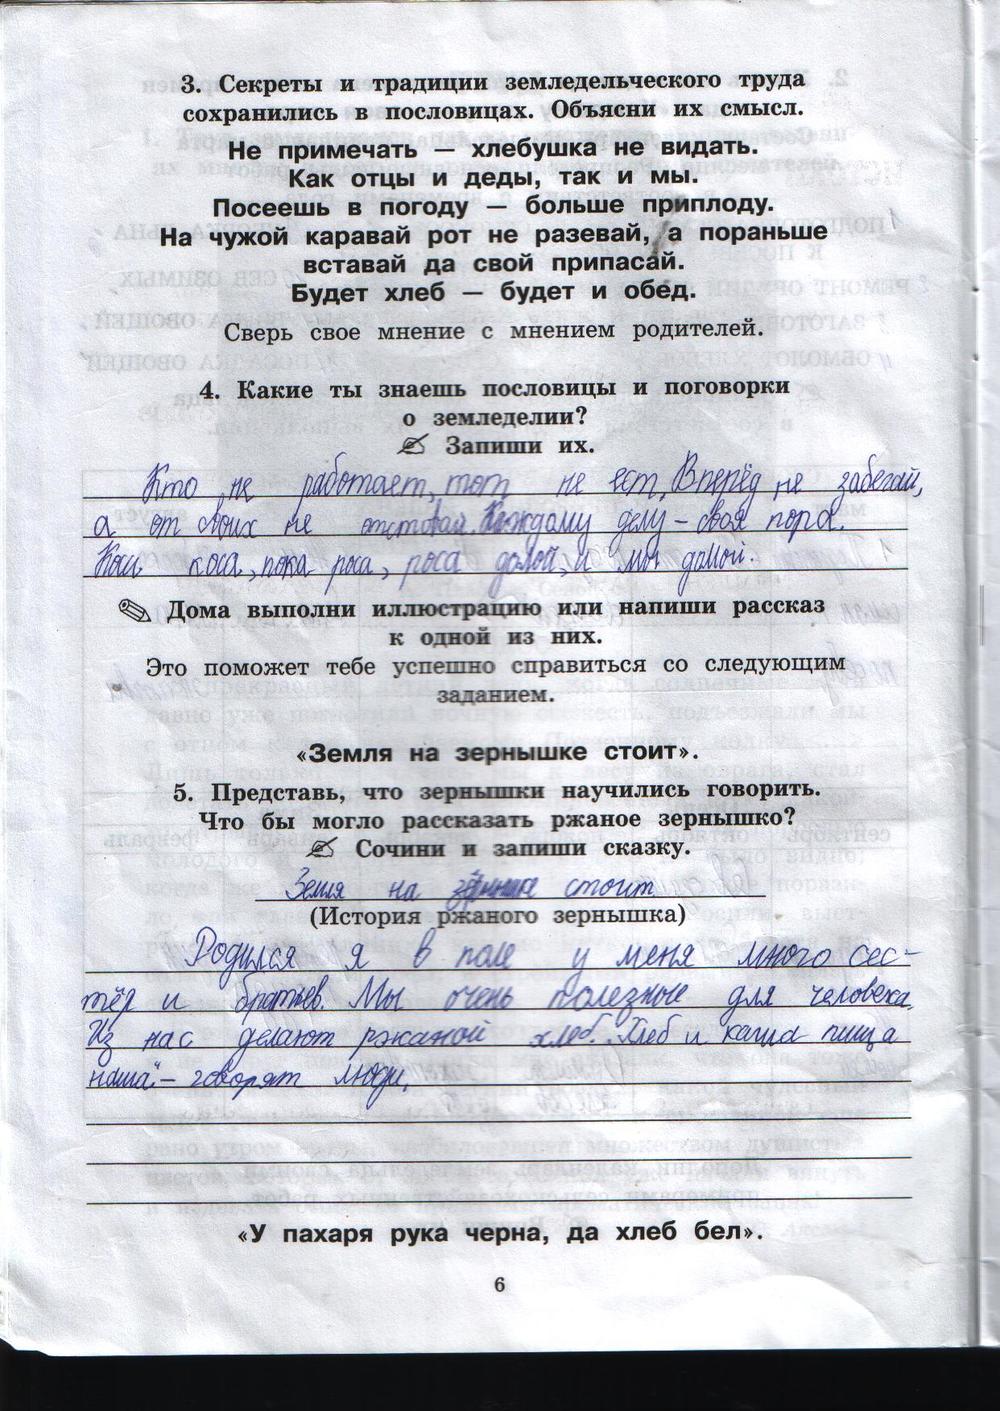 3. Секреты и традиции земледельческого труда
сохранились в пословицах. Объясни их смысл.
Не примечать — хлебушка не видать.
Как отцы и деды, так и мы.
Посеешь в погоду — больше приплоду.
На чужой каравай рот не разевай, а пораньше
вставай да свой припасай.
Будет хлеб — будет и обед.
Сверь свое мнение с мнением родителей.
4. Какие ты знаешь пословицы и поговорки
о земледелии?
Запиши их.
Кто не работает, тот не ест. Вперёд не забегай,
а от своих не отставай. Каждому делу – своя пора.
Коси коса, пока роса, роса долой, и мы домой.
Дома выполни иллюстрацию или напиши рассказ
к одной из них.
Это поможет тебе успешно справиться со следующим
заданием.
«Земля на зернышке стоит».
5. Представь, что зернышки научились говорить.
Что бы могло рассказать ржаное зернышко?
Сочини и запиши сказку.
Земля на стоит
(История ржаного зернышка)
Родился я в поле у меня много сес-
тёр и братьев. Мы очень полезные для человека.
Из нас делают ржаной хлеб. Хлеб и каша пища
наша" – говорят люди.
«У пахаря рука черна, да хлеб бел».
6